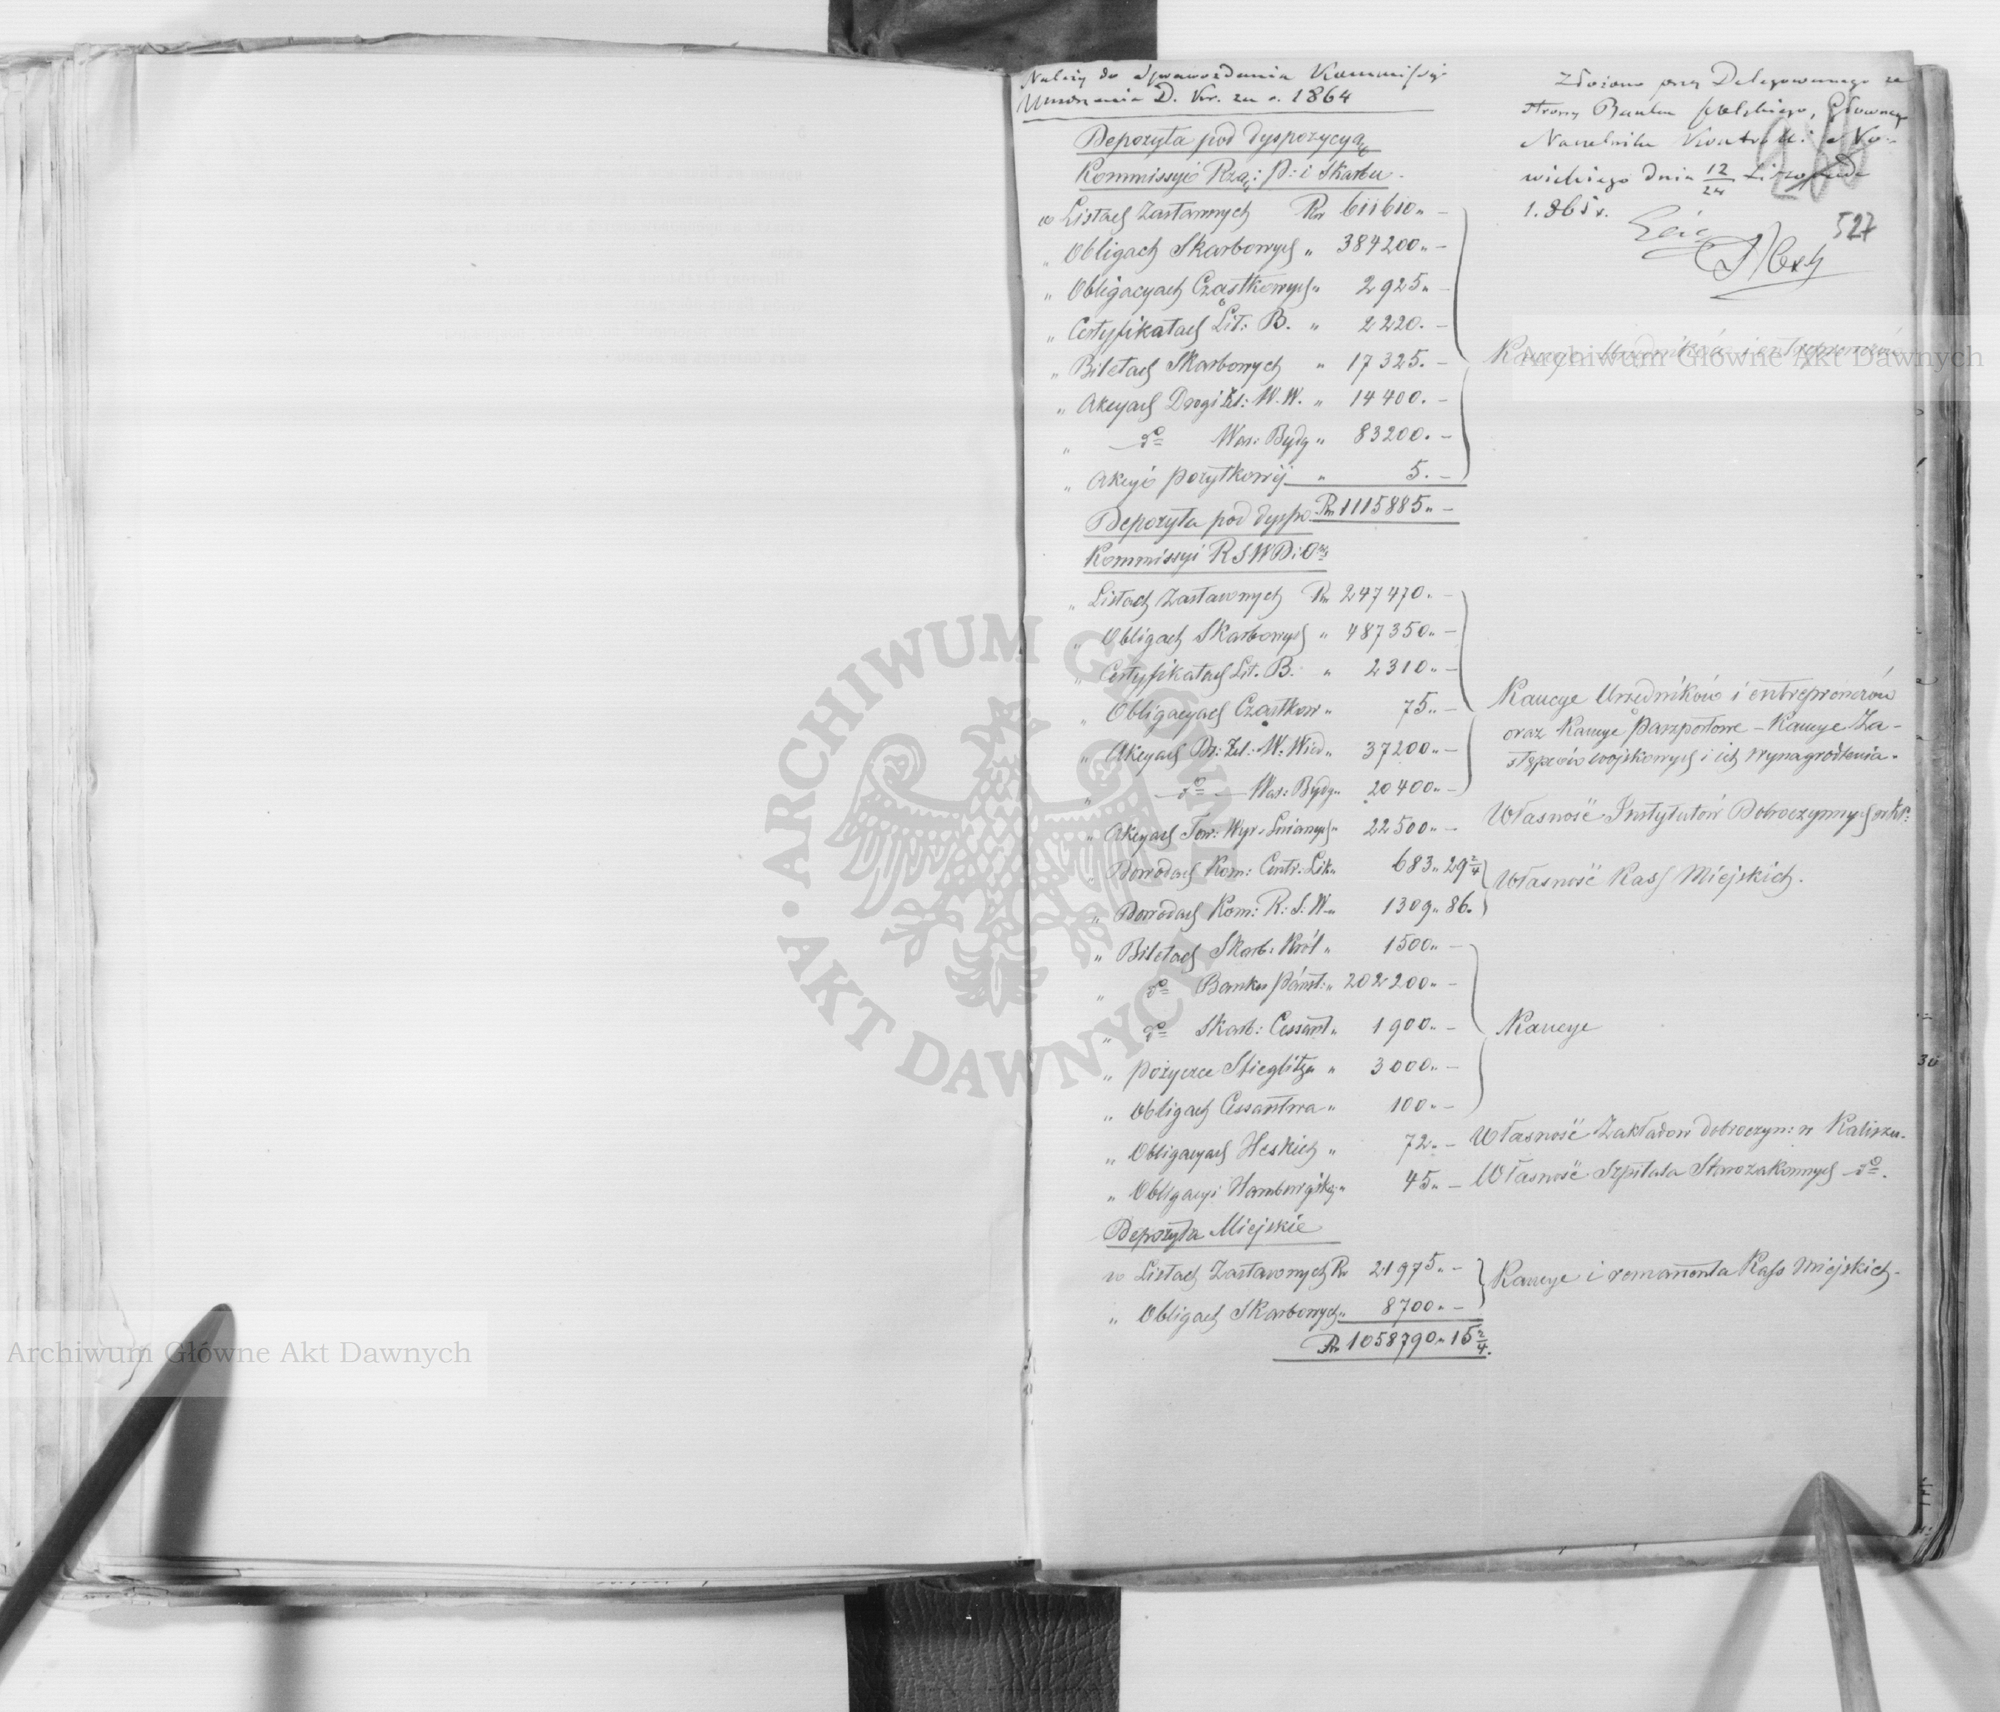 Należy do Sprawozdania Kommissyi
Umorzenia D. Kr. za r. 1864
Złożono przez Delegowanego ze
strony Banku Polskiego, Głównego
Naczelnika Kontroli No-
wickiego dnia 12/24 Listopada
1865 r.
527
Depozyta pod dyspozycyą
Kommissyi Rzą: P: i Skarbu.
w Listach Zastawnych Rs 611610 „ –
„ Obligach Skarbowych „ 384200 „ –
„ Obligacyach Cząstkowych „ 2925 „ –
„ Certyfikatach Lit: B. „ 2220. –
„ Biletach Skarbowych „ 17325. –
Kaucye Urzędników i entreprenerów
„ Akcyach Drogi Żel: W. W. „ 14400. –
„ do War: Bydg „ 83200. –
„ Akcyi pożytkowéj „ 5. –
Rs 1115885 „ –
Depozyta pod dyspo
Kommissyi R S W D: Or:
„ Listach Zastawnych Rs 247470. –
„ Obligach Skarbowych „ 487350 „ –
„ Certyfikatach Lit. B. „ 2310 „ –
„ Obligacyach Cząstkow „ 75 „ –
„ Akcyach Dr: Żel: W. Wied „ 37200 „ –
„ do War: Bydg „ 20400 „ –
Kaucye Urzędników i entreprenerów
oraz Kaucye Paszportowe – Kaucye Za-
stępców wojskowych i ich wynagrodzenia.
„ Akcyach Tow: Wyr. Lnianych „ 22500 „ – Własność Instytutów Dobroczynnych
„ Dowodach Kom: Centr: Lik „ 683 „ 29 2/4
„ Dowodach Kom: R: S: W „ 1309 „ 86.
Własność Kass Miejskich.
„ Biletach Skarb: Król „ 1500 „ –
„ do Banku Państ: „ 202200 „ –
„ do Skarb: Cessarst „ 1900 „ – Kaucye
„ Pożyczce Stieglitza „ 3000 „ –
„ Obligach Cessarstwa „ 100 „ –
„ Obligacyach Heskich „ 72 „ – Własność Zakładów dobroczyn: w Kaliszu.
„ Obligacyi Hamburgskiej „ 45 „ – Własność Szpitala Starozakonnych do.
Depozyta Miejskie
w Listach Zastawnych Rs 21975 „ –
„ Obligach Skarbowych „ 8700 „ –
Kaucye i remanenta Kass Miejskich.
Rs 1058790 „ 15 2/4.
Archiwum Główne Akt Dawnych
ARCHIWUM GŁÓWNE
AKT DAWNYCH
Archiwum Główne Akt Dawnych